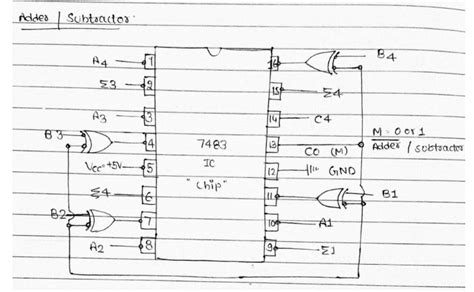 Adder / Subtractor
A4
1
Σ3
2
A3
3
B3
4
Vcc=+5V
5
Σ4
6
B2
7
A2
8
7483
IC
"Chip"
16
B4
15
Σ4
14
C4
13
C0 (M)
M=0 or 1
Adder / subtractor
12
GND
11
B1
10
A1
9
Σ1